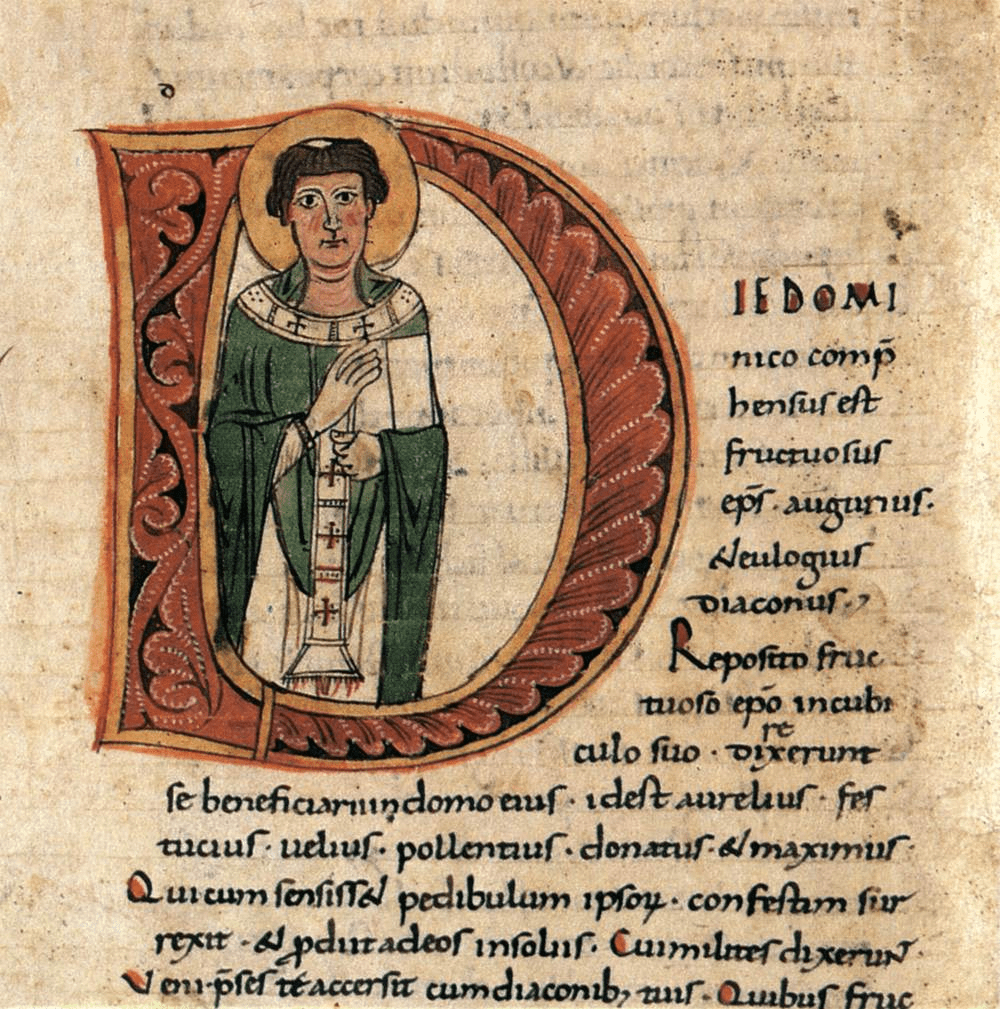 d
DIEDOMI
nico comp̄
hensus est
fructuosus
ep̄s · augurius ·
&eulogius
diaconus ·,
Reposito fruc
tuoso ep̄o incubi
culo suo · dixerunt
re
se beneficiarii indomo eius · idest aurelius · fes
tucius · uelius · pollentius · donatus · &maximus ·
Qui cum sensiss& pedibulum ipsoꝝ · confestim sur
rexit · & ꝓdiit adeos insolus · Cui milites dixerunt ·
Veni · p̄ses te accersit cum diaconib; tuis · Quibus fruc